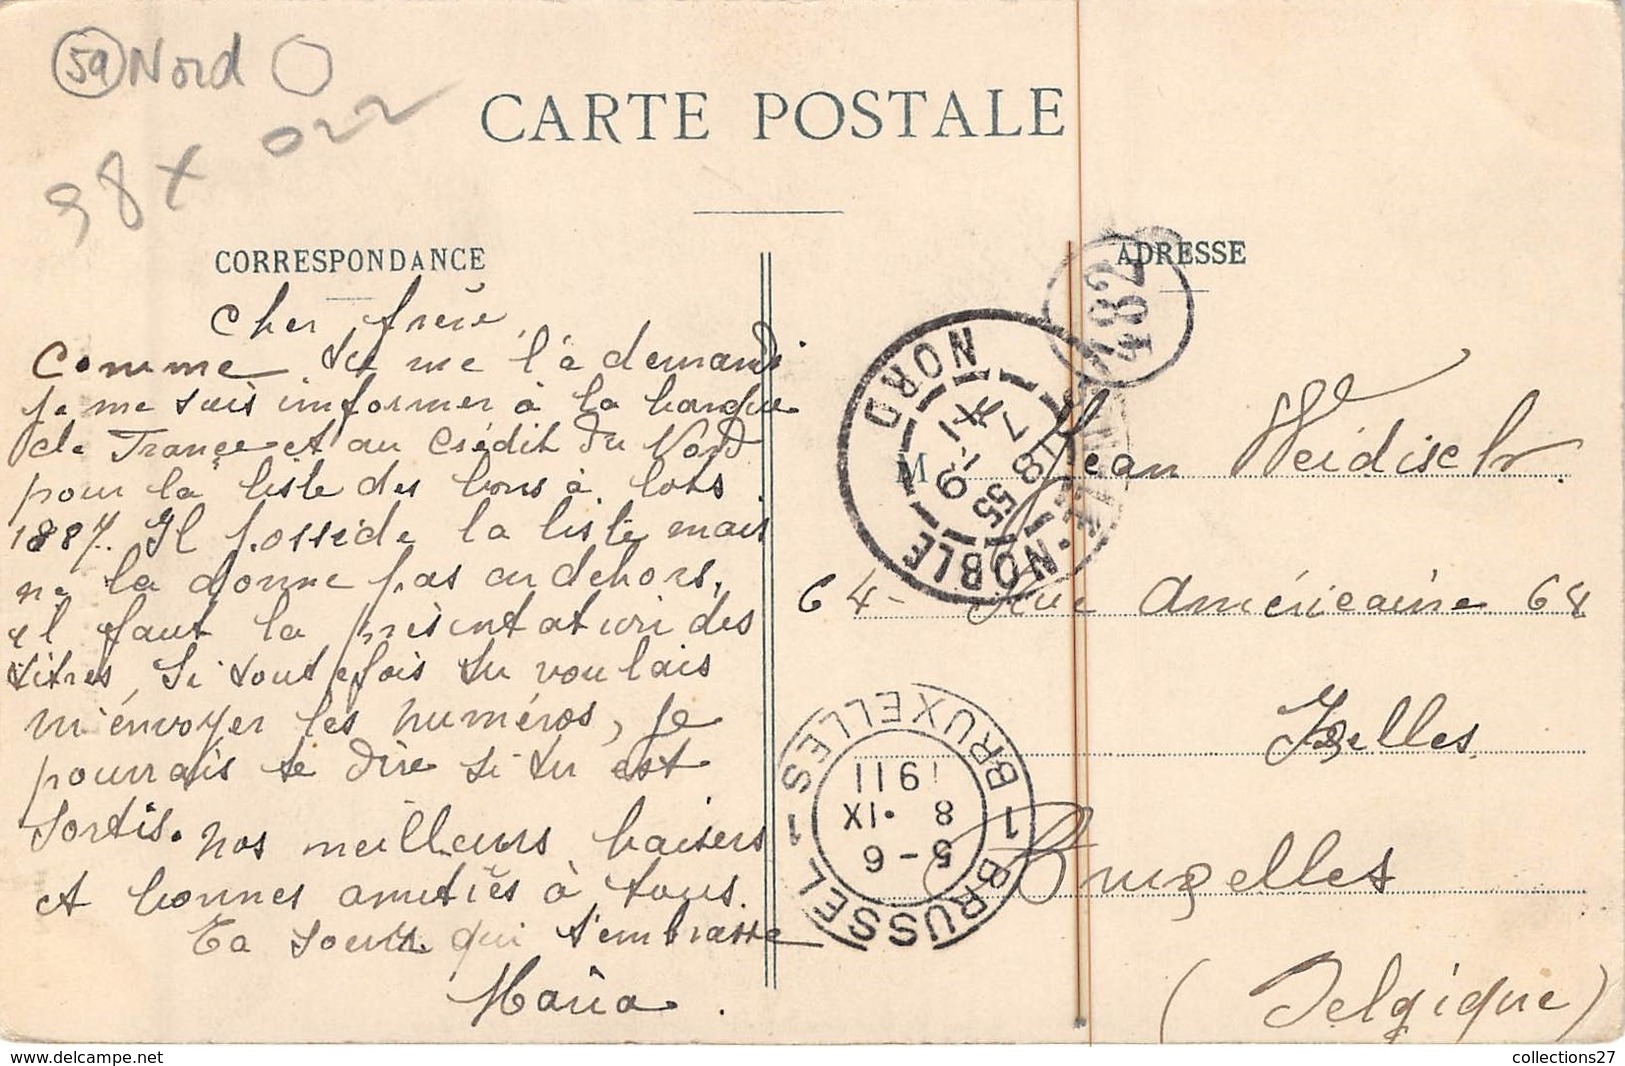 59 Nord
98 x 022
CARTE POSTALE
CORRESPONDANCE
Cher frère,
Comme tu me l'a demandé
je me suis informer à la banque
de France et au Crédit du Nord
pour la liste des bons à lots
1887. Il possède la liste mais
ne la donne pas au dehors,
il faut la présentation des
titres, Si toutefois tu voulais
m'énvoyer les numéros, je
pourrais te dire si tu est
sortis. Nos meilleurs baisers
et bonnes amitiés à tous.
Ta soeur qui t'embrasse
Maria.
ADRESSE
482
NOBLE NORD
9 - XI
7 18 55
M Jean Weidisch
64 - Rue Américaine 64
Ixelles
Bruxelles
(Belgique)
1 BRUXELLES 1 BRUSSEL
5-6
8 .IX
1911
collections27